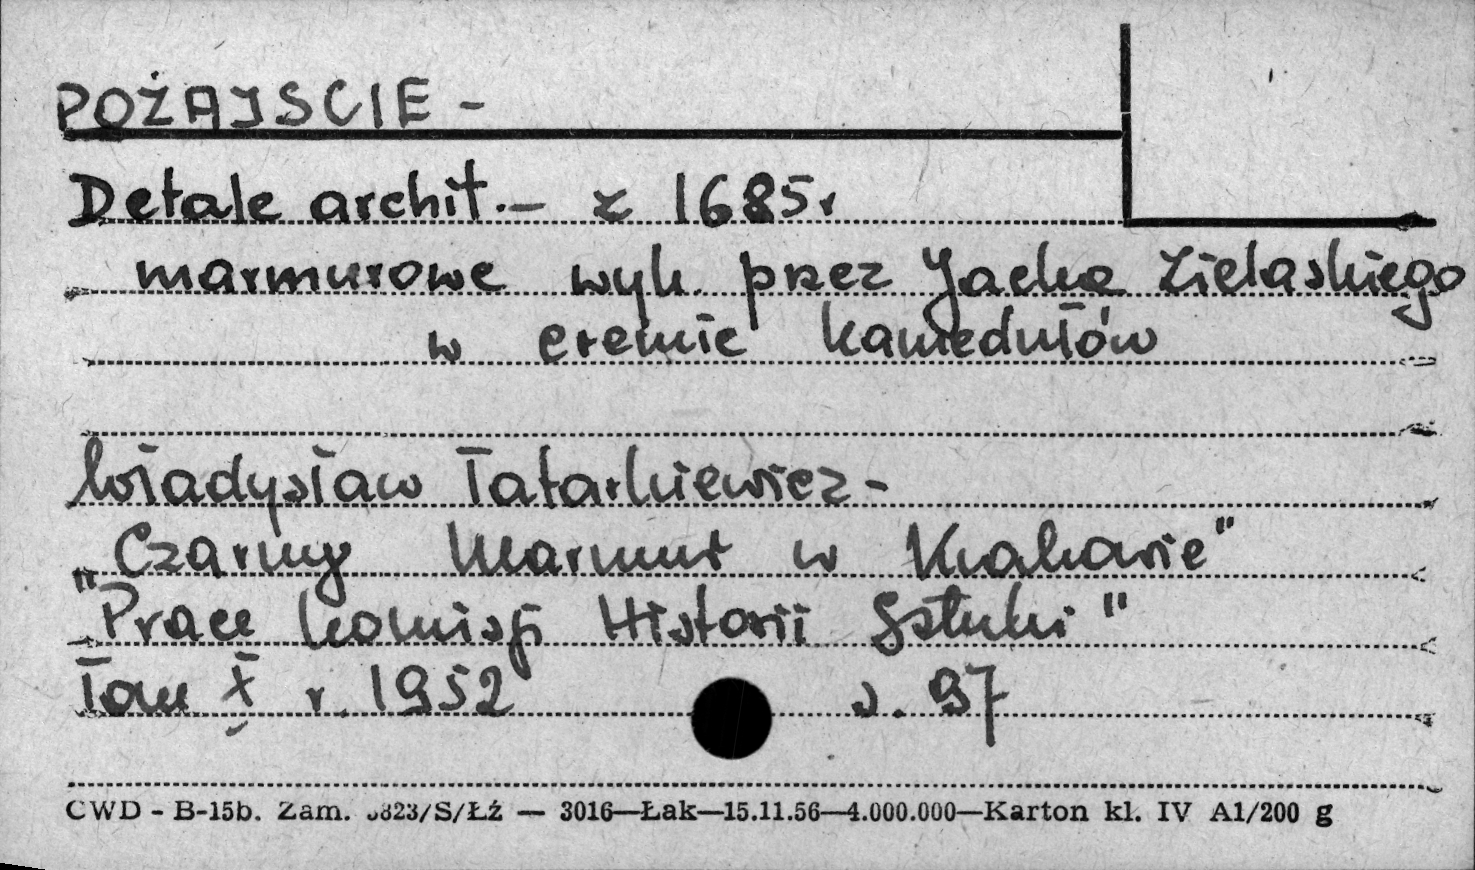 POŻAJSCIE -
Detale archit. - z 1685 r
marmurowe wyk. przez Jacka Zielaskiego
w eremie kamedułów
Władysław Tatarkiewicz -
„Czarny Marmur w Krakowie"
„Prace Komisji Historii Sztuki"
Tom X r. 1952 s. 97
CWD - B-15b. Zam. 3823/S/Łź — 3016—Łak—15.11.56—4.000.000—Karton kl. IV A1/200 g